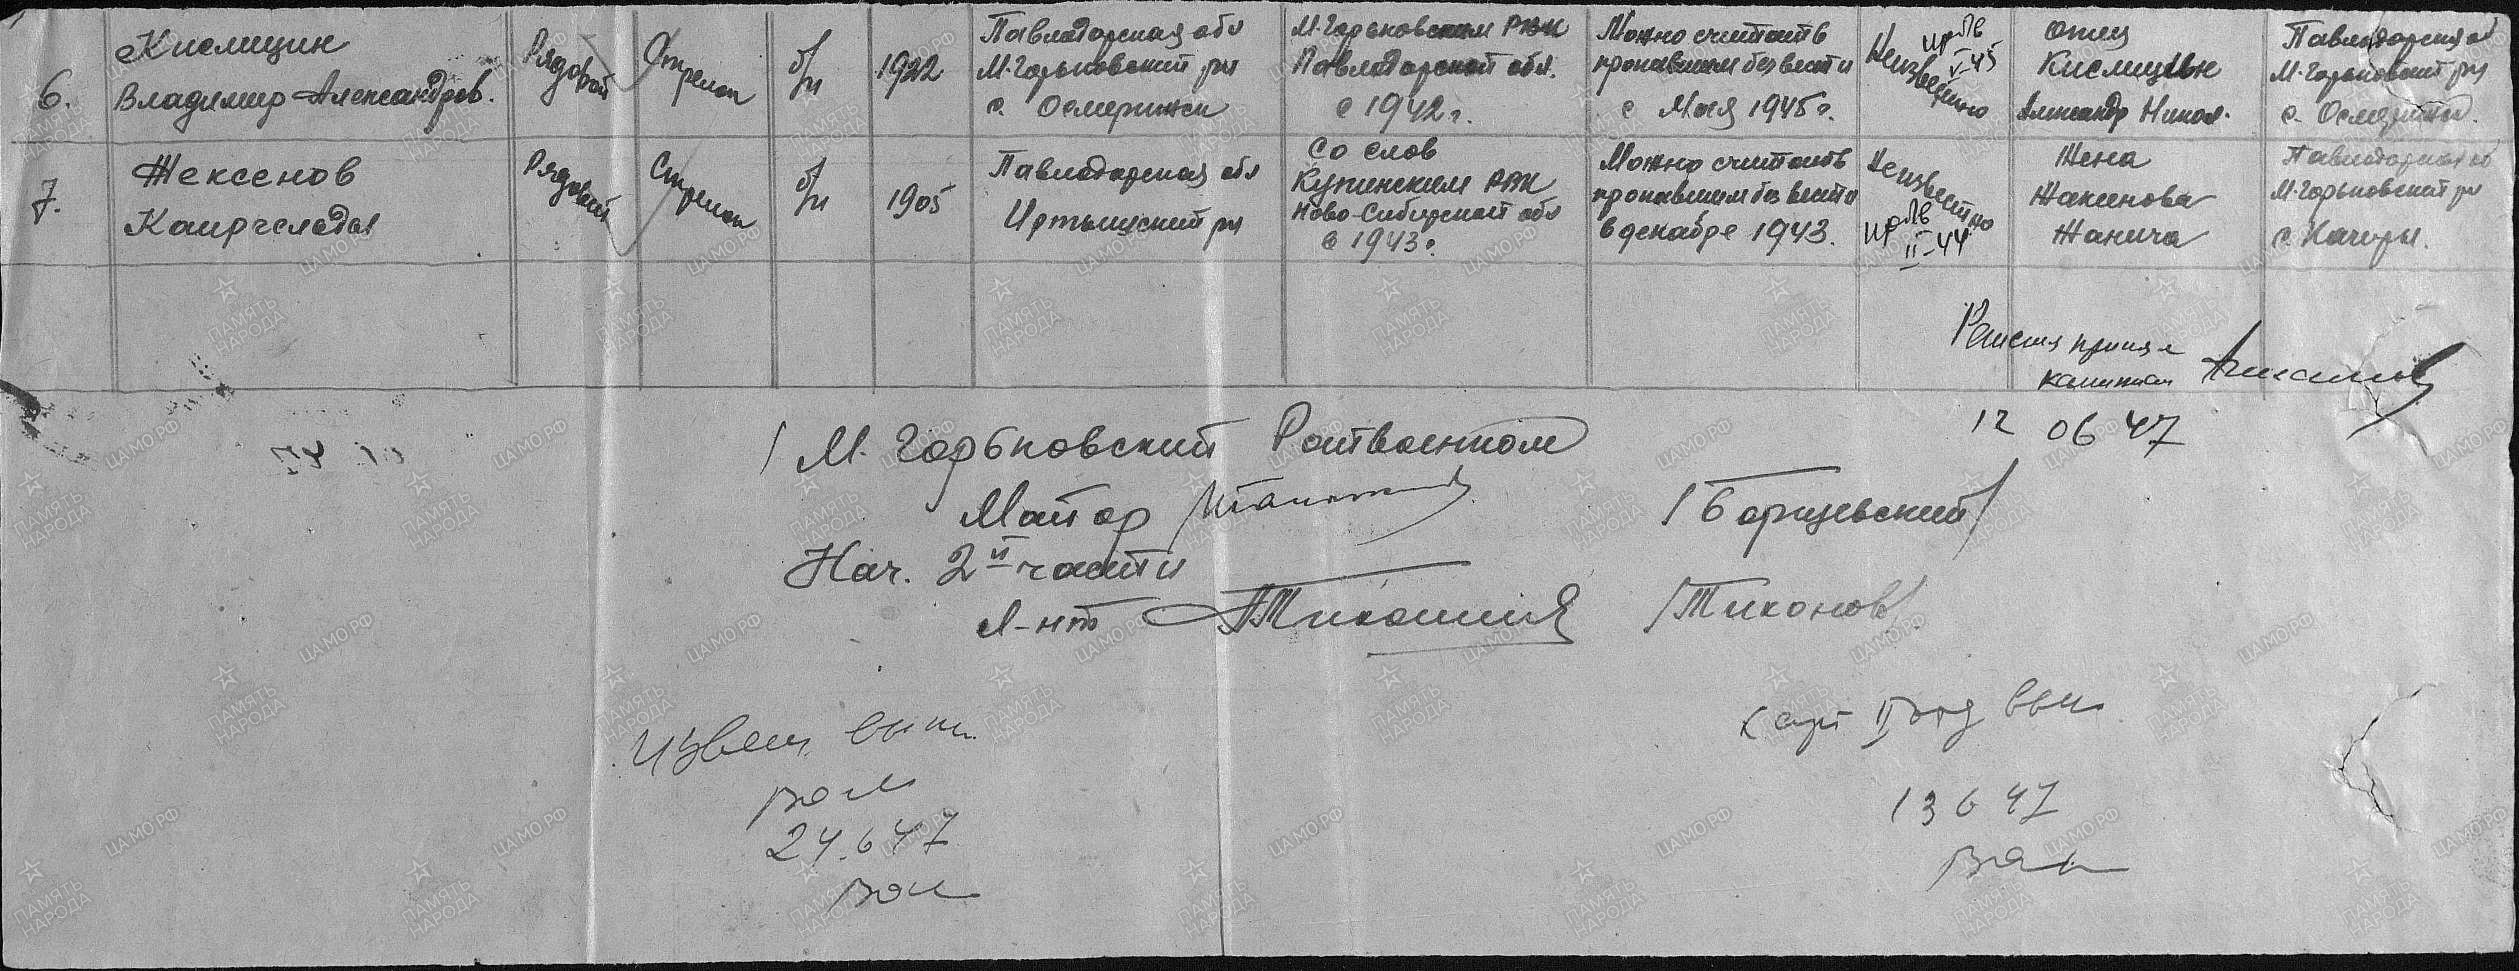 6.
Кислицин
Владимир Александров.
Рядовой
Стрелок
б/п
1922
Павлодарская обл
М.Горьковский рн
с. Осмерижск
М.Горьковским РВК
Павлодарской обл.
с 1942 г.
Можно считать
пропавшим без вести
с Мая 1945 г.
Неизвестно
V-45
отец
Кислицин
Александр Никол.
Павлодарская об
М.Горьковский рн
с. Осмерижск.
7.
Жексенов
Рядовой
Стрелок
б/п
1905
Павлодарская обл
Иртышский рн
Со слов
Купинским РВК
Ново-Сибирской обл
с 1943 г.
Можно считать
пропавшим без вести
в декабре 1943.
Неизвестно
II-44
Жена
Жакенова
Жанича
Павлодарская об
М.Горьковский рн
с. Качиры.
капитан
12 06 47
М. Горьковский Райвоенком
Майор
/Борщевский/
Нач. 2й части
Л-нт
/Тихонов/
Извещ. вып.
24.6 47
II
13 6 47
ПАМЯТЬ НАРОДА
ЦАМО РФ